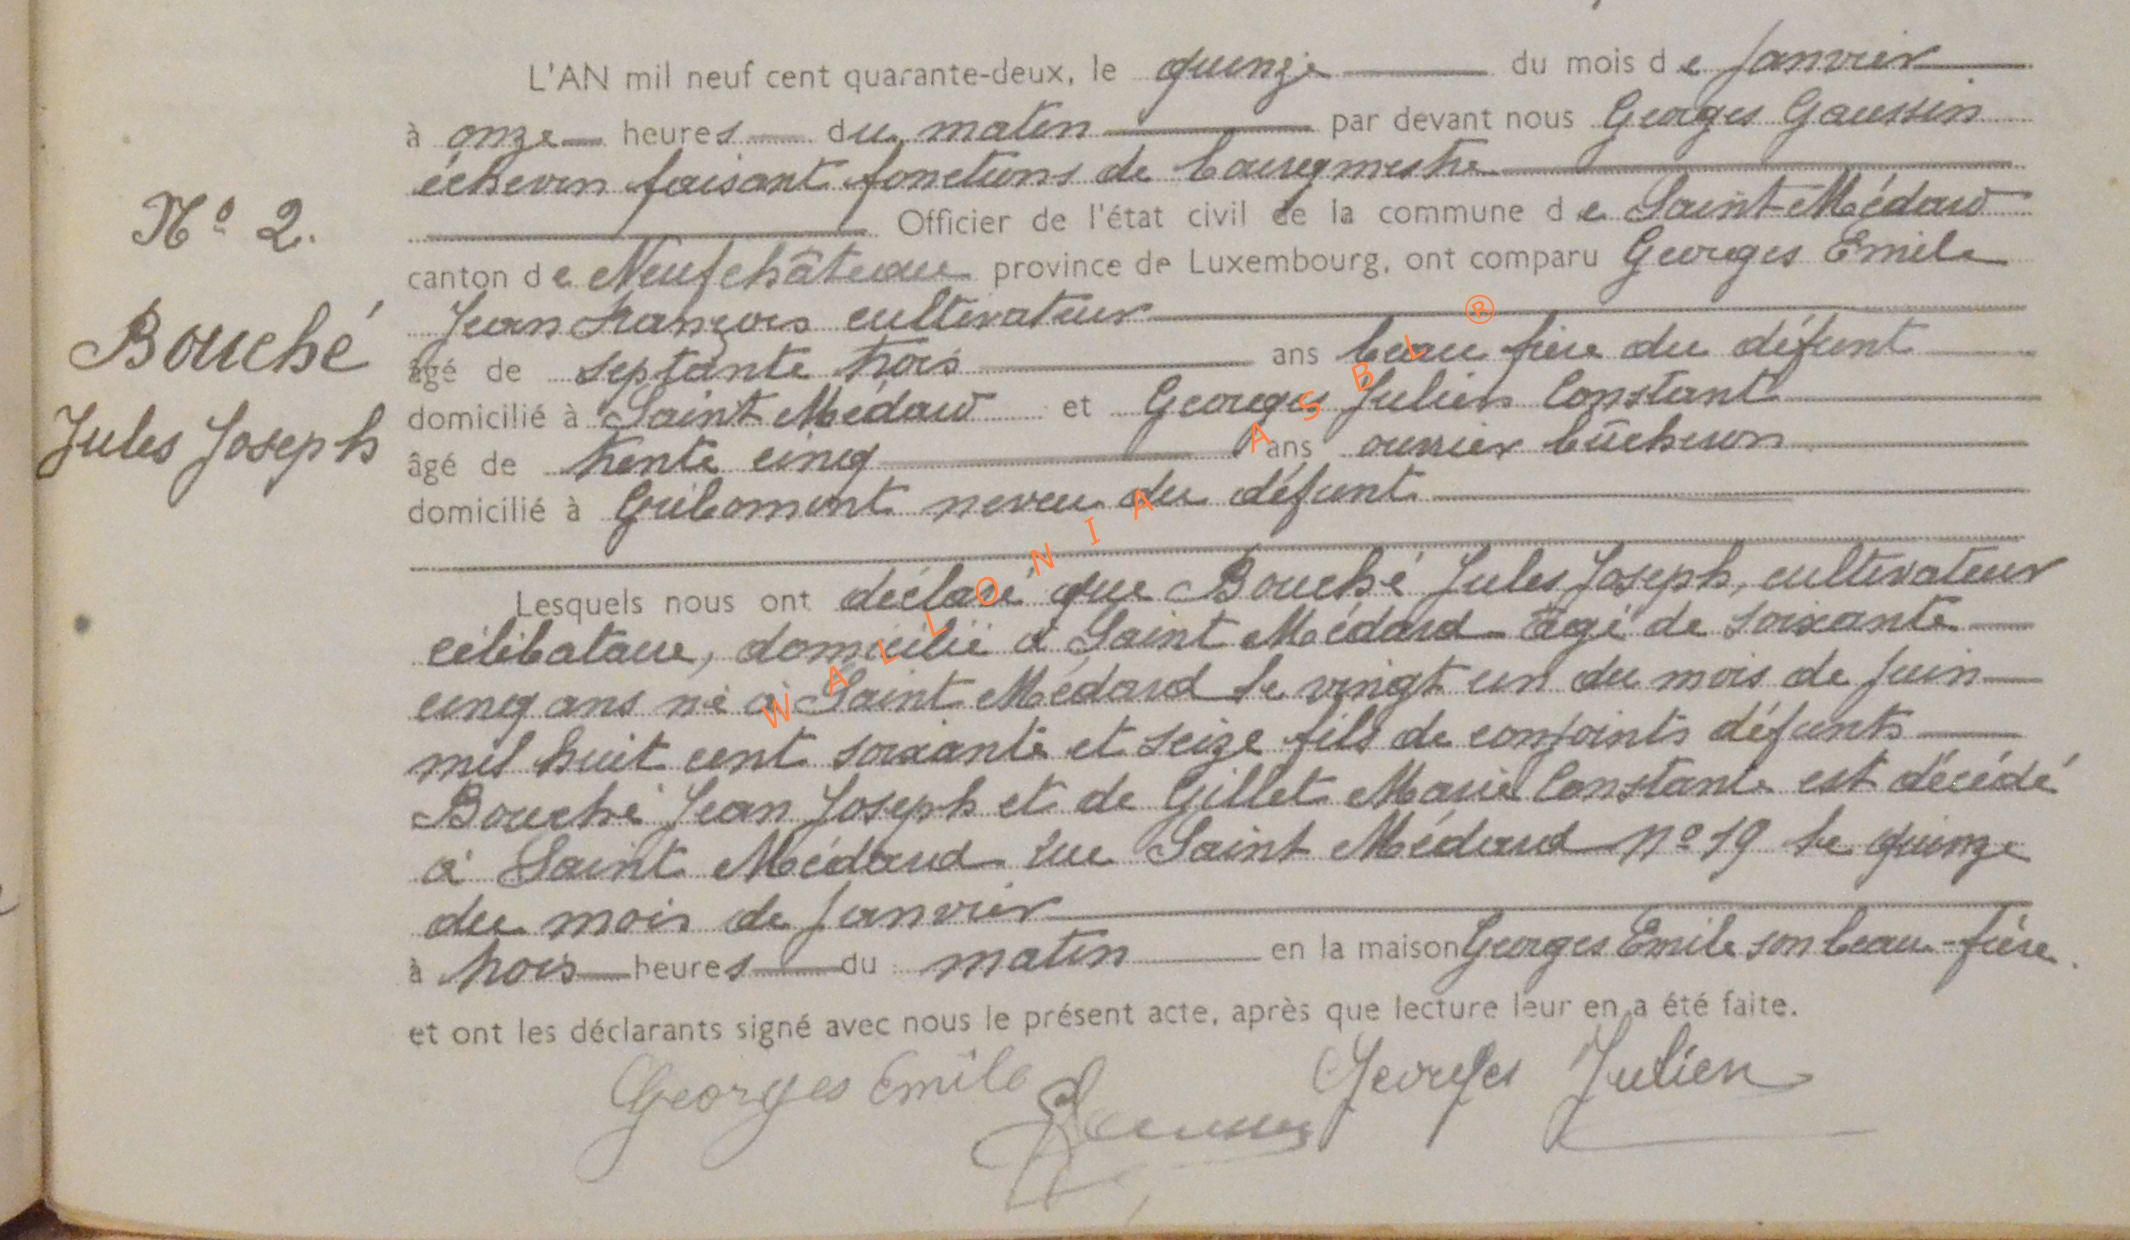 L'AN mil neuf cent quarante-deux, le quinze du mois de Janvier
à onze heures du matin par devant nous Georges Gaussin
échevin faisant fonctions de bourgmestre
Officier de l'état civil de la commune de Saint-Médard
canton de Neufchâteau province de Luxembourg, ont comparu Georges Emile
Jean François cultivateur
âgé de septante trois ans beau frère du défunt
domicilié à Saint Médard et Georges Julien Constant
âgé de trente cinq ans ouvrier bûcheron
domicilié à Gribomont neveu du défunt
Lesquels nous ont déclaré que Bouché Jules Joseph, cultivateur
célibataire, domicilié à Saint Médard âgé de soixante
cinq ans né à Saint Médard le vingt un du mois de juin
mil huit cent soixante et seize fils de conjoints défunts
Bouché Jean Joseph et de Gillet Marie Constante est décédé
à Saint Médard rue Saint Médard nº 19 le quinze
du mois de Janvier
à trois heures du matin en la maison Georges Emile son beau-frère.
et ont les déclarants signé avec nous le présent acte, après que lecture leur en a été faite.
Georges Emile Gaussin Georges Julien
Nº 2.
Bouché
Jules Joseph
WALLONIA ASBL ®